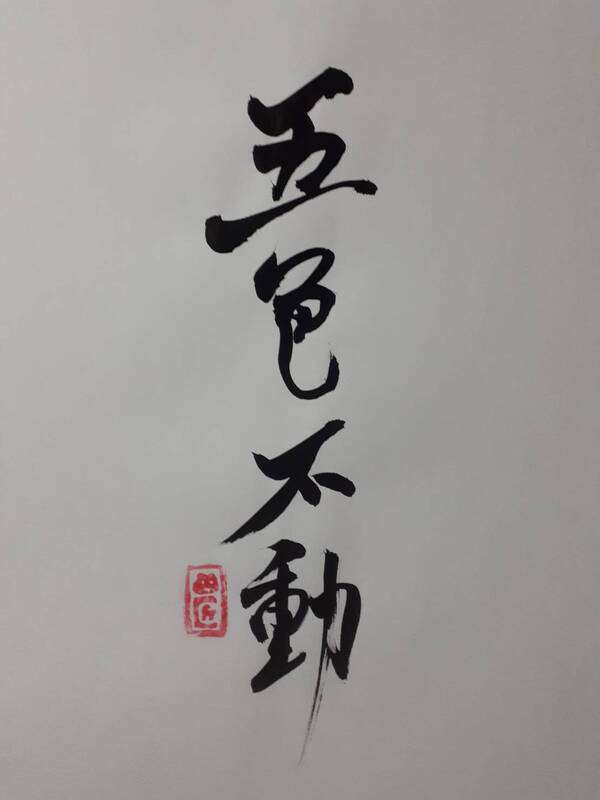 五色不動